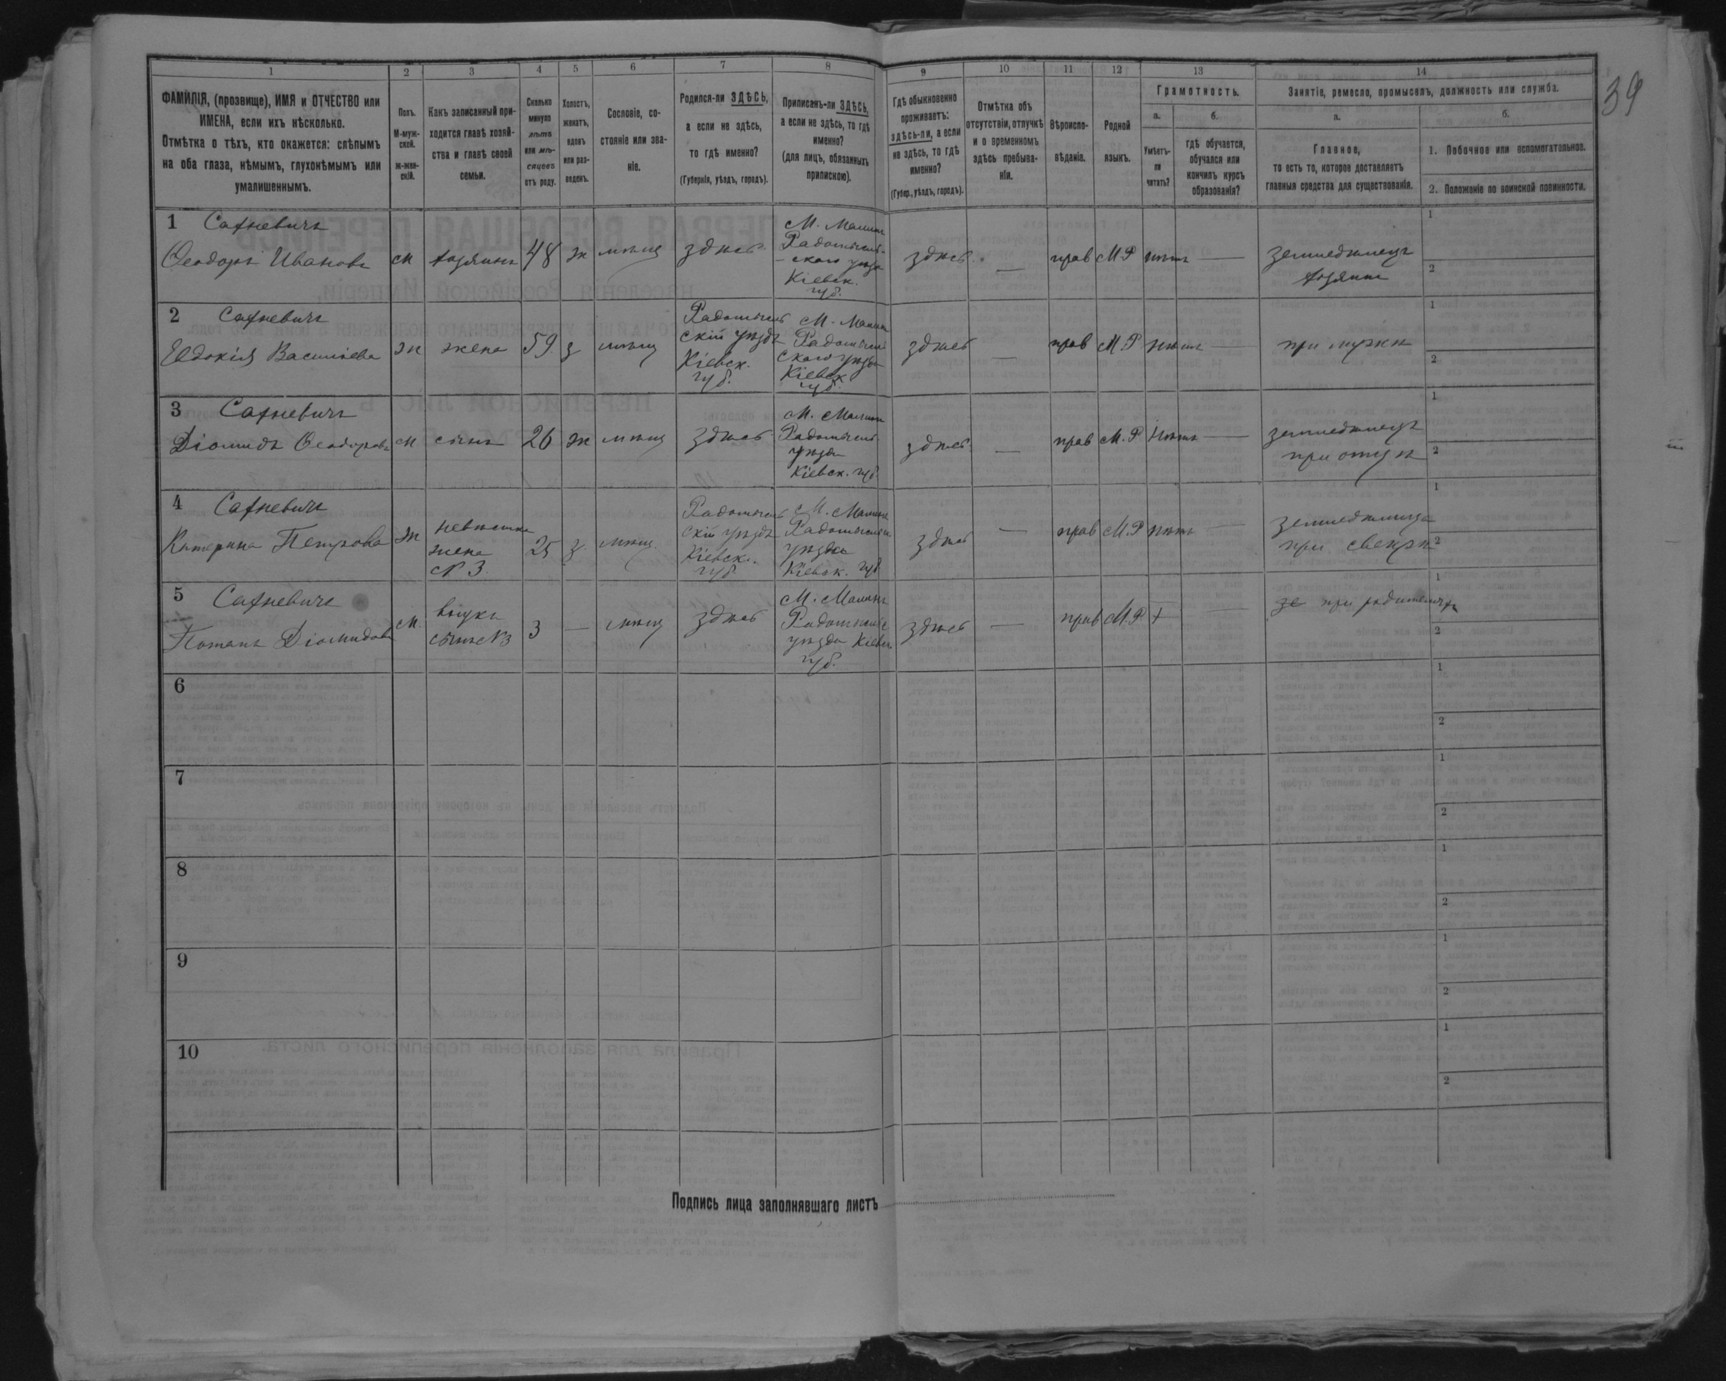 34
1 2 3 4 5 6 7 8 9 10 11 12 13 14
ФАМИЛІЯ, (прозвище), ИМЯ и ОТЧЕСТВО или
ИМЕНА, если ихъ нѣсколько.
Отмѣтка о тѣхъ, кто окажется: слѣпымъ
на оба глаза, нѣмымъ, глухонѣмымъ или
умалишеннымъ.
Полъ.
М-муж-
ской.
ж-жен-
скій.
Какъ записанный при-
ходится главѣ хозяй-
ства и главѣ своей
семьи.
Сколько
минуло
лѣтъ
или мѣ-
сяцевъ
отъ роду.
Холостъ,
женатъ,
вдовъ
или раз-
веденъ.
Сословіе, со-
стояніе или зва-
ніе.
Родился-ли ЗДѢСЬ,
а если не здѣсь,
то гдѣ именно?
(Губернія, уѣздъ, городъ).
Приписанъ-ли ЗДѢСЬ,
а если не здѣсь, то гдѣ
именно?
(для лицъ, обязанныхъ
припискою).
Гдѣ обыкновенно
проживаетъ:
здѣсь-ли, а если
не здѣсь, то гдѣ
именно?
(Губер., уѣздъ, городъ).
Отмѣтка объ
отсутствіи, отлучкѣ
и о временномъ
здѣсь пребыва-
ніи.
Вѣроиспо-
вѣданіе.
Родной
языкъ.
Грамотность.
а.
Умѣетъ-
ли
читать?
б.
гдѣ обучается,
обучался или
кончилъ курсъ
образованія?
Занятіе, ремесло, промыселъ, должность или служба.
а.
Главное,
то есть то, которое доставляетъ
главныя средства для существованія.
б.
1. Побочное или вспомогательное.
2. Положеніе по воинской повинности.
1 Сахневичъ
Ѳеодоръ Ивановъ м хозяинъ 48 ж мѣщ здѣсь
М. Малинъ
Радомысль-
скаго уѣзда
Кіевск.
губ.
здѣсь — прав М.Р нѣтъ —
земледѣлецъ
хозяинъ
1
2
2 Сахневичъ
Евдокія Василіева ж жена 59 з мѣщ
Радомысль
скій уѣздъ
Кіевск.
губ.
М. Малинъ
Радомысль
скаго уѣзда
Кіевск
губ.
здѣсь — прав М.Р нѣтъ — при мужѣ
1
2
3 Сахневичъ
Діомидъ Ѳеодоровъ м сынъ 26 ж мѣщ здѣсь
М. Малинъ
Радомысль
уѣзда
Кіевск. губ
здѣсь — прав М.Р нѣтъ —
земледѣлецъ
при отцѣ
1
2
4 Сахневичъ
Катерина Петрова ж
невѣстка
жена
№ 3.
25 з мѣщ.
Радомысль
скій уѣздъ
Кіевск.
губ
М. Малинъ
Радомысль
уѣзда
Кіевск. губ
здѣсь — прав М.Р нѣтъ —
земледѣлица
при свекрѣ
1
2
5 Сахневичъ
Потапъ Діомидовъ м.
внукъ
сынъ №3
3 — мѣщ здѣсь
М. Малинъ
Радомысль
уѣзда Кіевск
губ.
здѣсь — прав М.Р + — при родителяхъ
1
2
6
1
2
7
1
2
8
1
2
9
1
2
10
1
2
Подпись лица заполнявшаго листъ